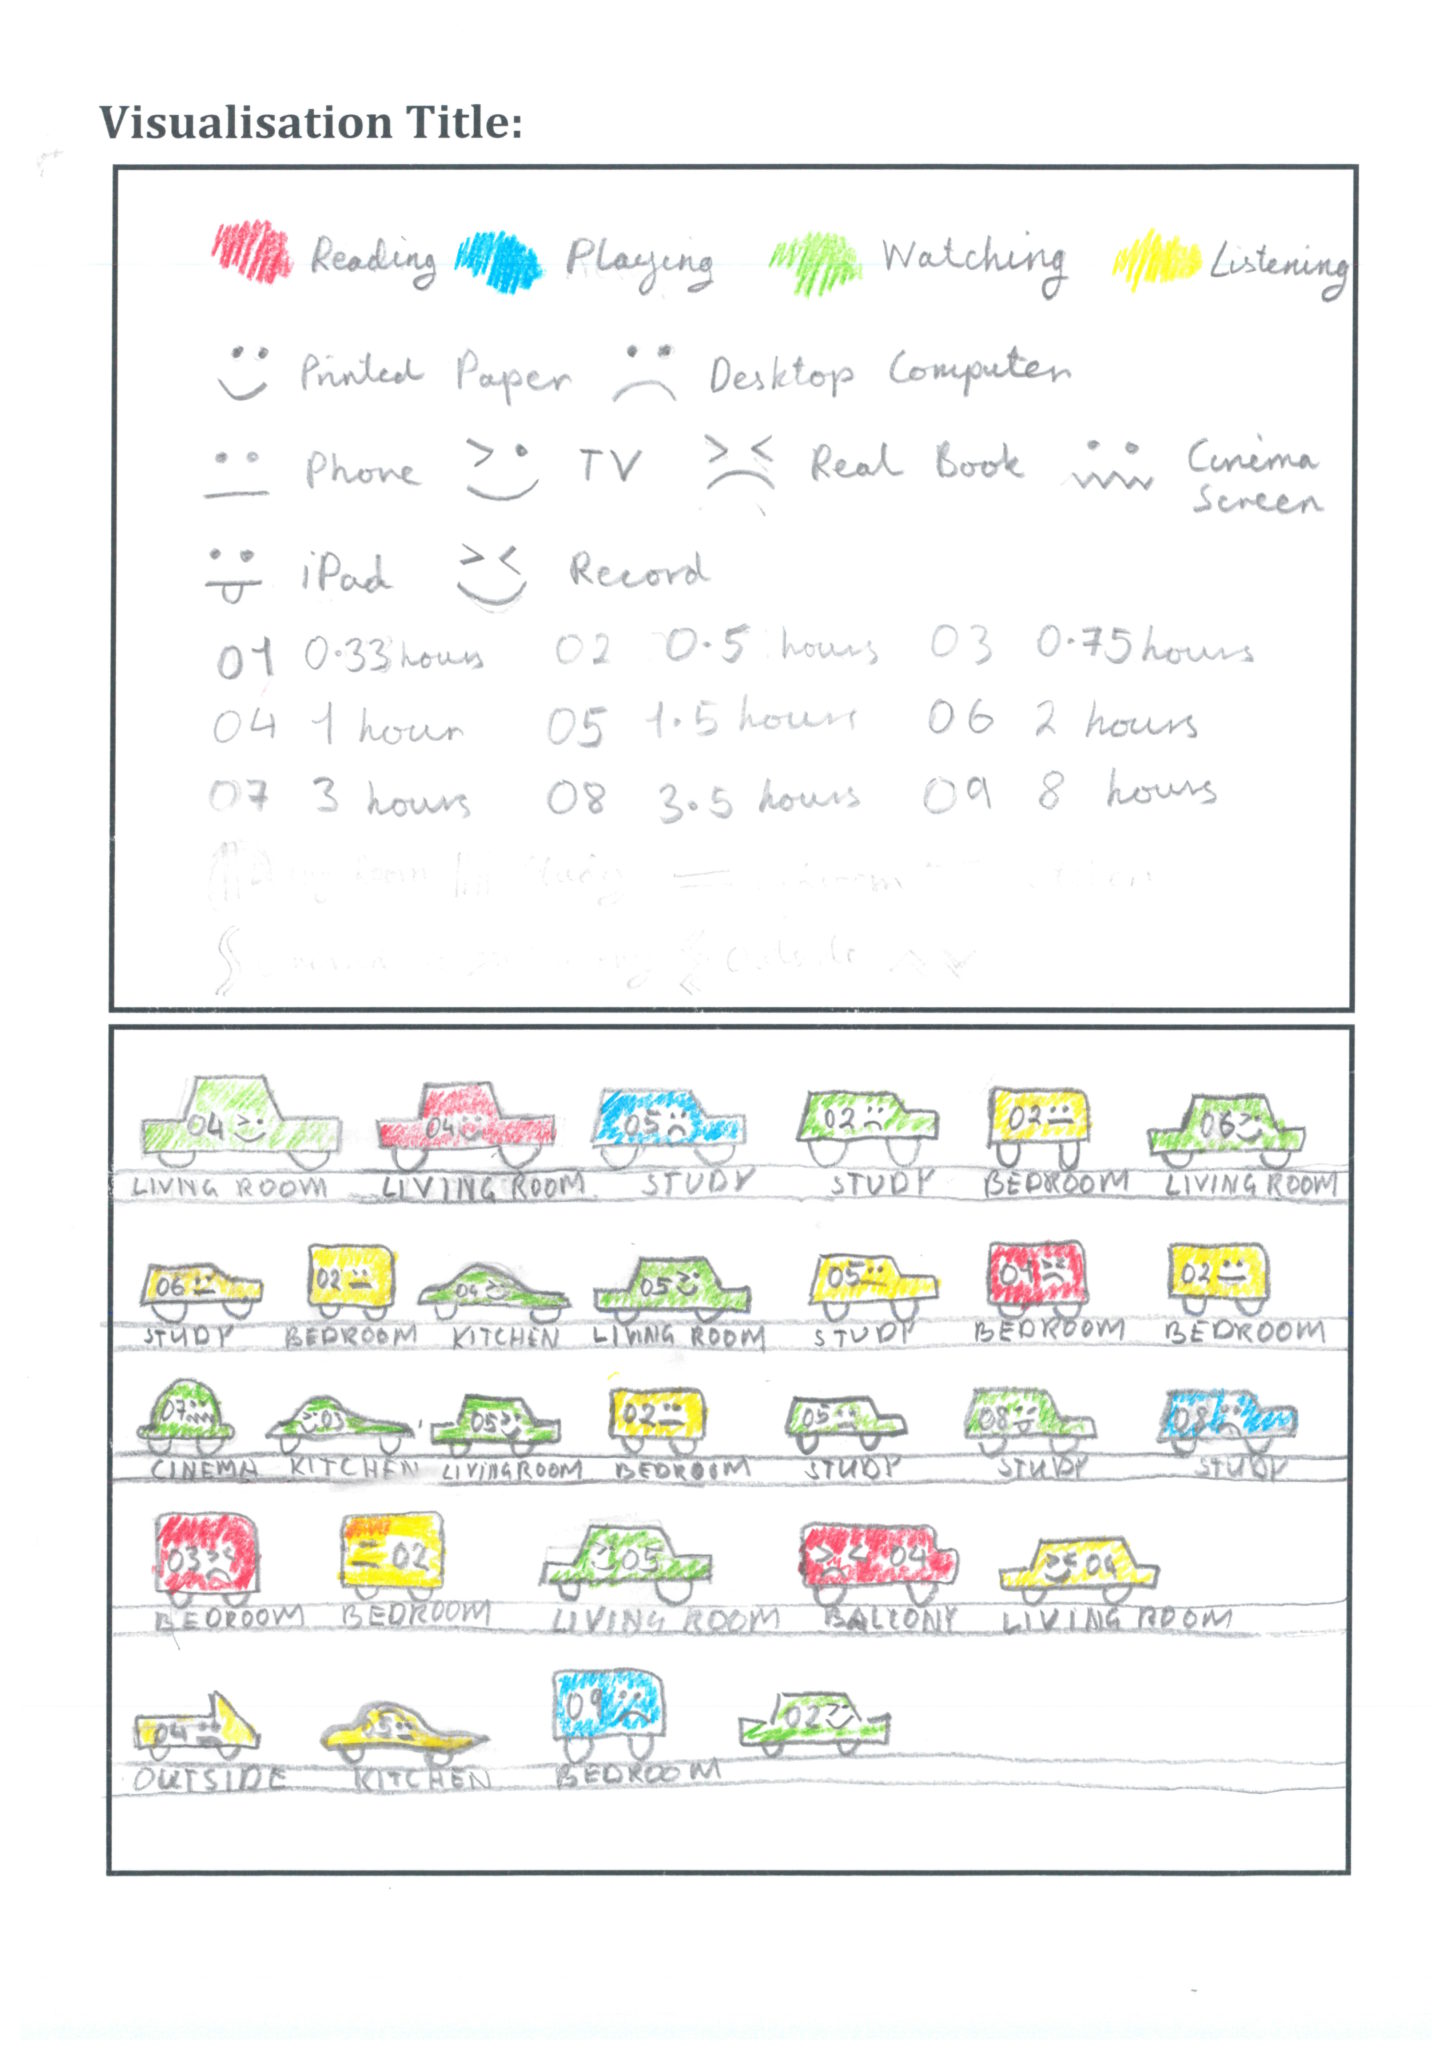 Visualisation Title:
Reading Playing Watching Listening
Printed Paper Desktop Computer
Phone TV Real Book Cinema Screen
iPad Record
01 0.33 hours 02 0.5 hours 03 0.75 hours
04 1 hour 05 1.5 hours 06 2 hours
07 3 hours 08 3.5 hours 09 8 hours
Room Study
Outside
04 04 05 02 02 06
LIVING ROOM LIVING ROOM STUDY STUDY BEDROOM LIVING ROOM
06 02 04 05 05 01 02
STUDY BEDROOM KITCHEN LIVING ROOM STUDY BEDROOM BEDROOM
07 03 05 02 05 08 08
CINEMA KITCHEN LIVINGROOM BEDROOM STUDY STUDY STUDY
03 02 05 04
BEDROOM BEDROOM LIVING ROOM BALCONY LIVING ROOM
04 09 02
OUTSIDE KITCHEN BEDROOM